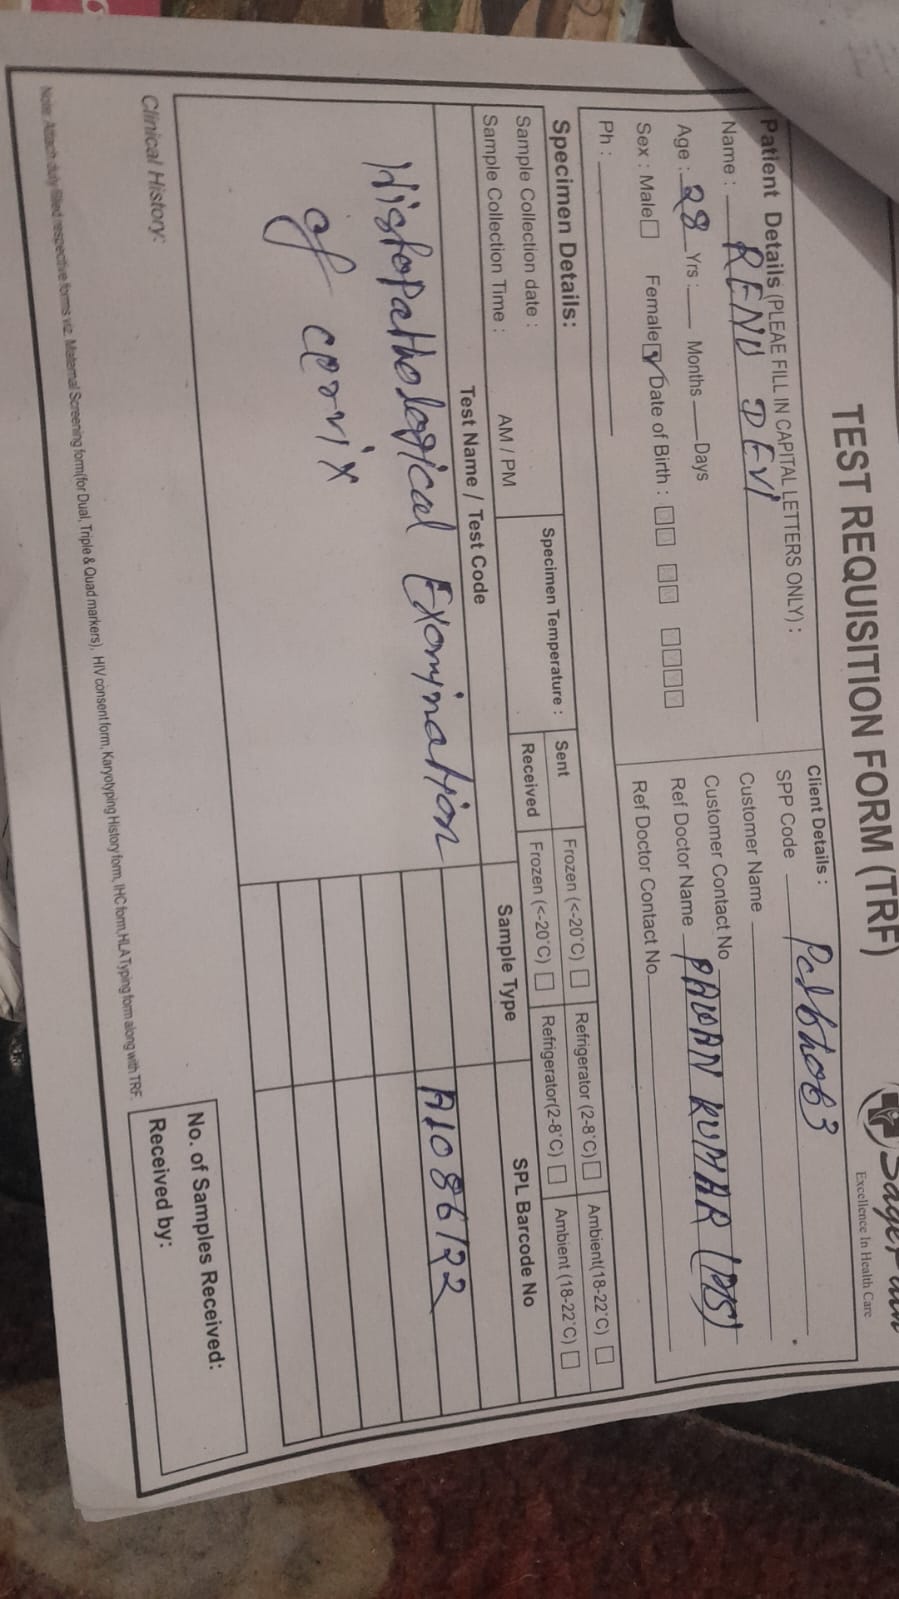 TEST REQUISITION FORM (TRF)
Excellence In Health Care
Patient Details (PLEAE FILL IN CAPITAL LETTERS ONLY) :
Name : RENU DEVI
Age : 28 Yrs : Months Days
Sex : Male Female Date of Birth :
Ph :
Client Details :
SPP Code
Customer Name
Customer Contact No
Ref Doctor Name PAWAN KUMAR
Ref Doctor Contact No.
Specimen Details:
Sample Collection date :
Sample Collection Time : AM / PM
Specimen Temperature :
Sent Frozen (<-20°C) Refrigerator (2-8°C) Ambient(18-22°C)
Received Frozen (<-20°C) Refrigerator(2-8°C) Ambient (18-22°C)
Test Name / Test Code Sample Type SPL Barcode No
Histopathological Examination A1086122
of cervix
Clinical History:
No. of Samples Received:
Received by:
Note: Attach duly filled respective forms viz. Maternal Screening form(for Dual, Triple & Quad markers), HIV consent form, Karyotyping History form, IHC form, HLA Typing form along with TRF.